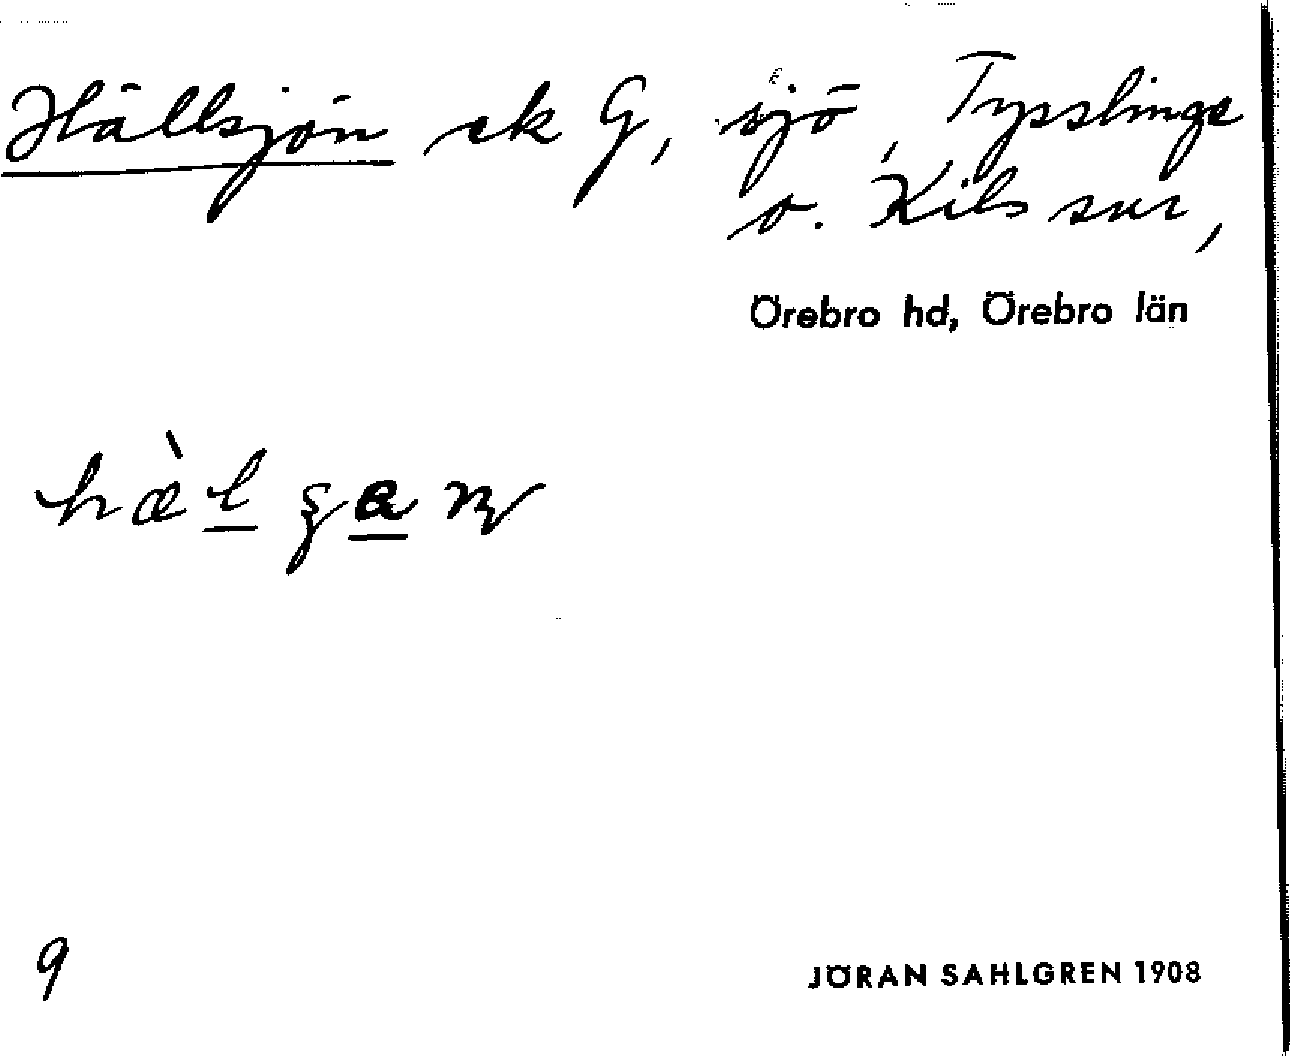 Hällsjön ek G, sjö, Tysslinge
o. Kils snr,
Örebro hd, Örebro län
9
JÖRAN SAHLGREN 1908